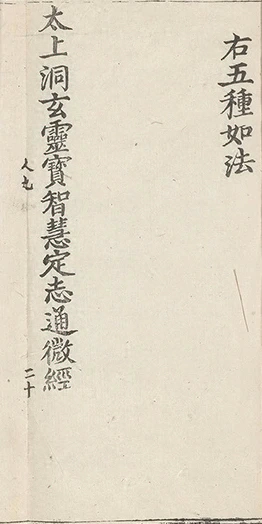 右五種如法
太上洞玄靈寶智慧定志通微經
人九
二十